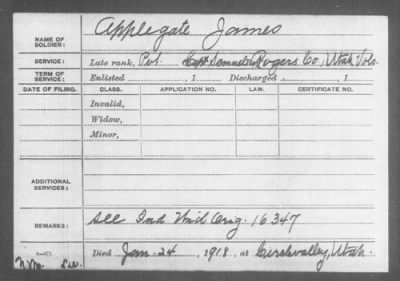 NAME OF SOLDIER: Applegate James
SERVICE: Late rank, Pvt Capt Samuel Rogers Co., Utah Vols.
TERM OF SERVICE: Enlisted , 1 Discharged , 1
DATE OF FILING. CLASS. APPLICATION NO. LAW. CERTIFICATE NO.
Invalid,
Widow,
Minor,
ADDITIONAL SERVICES:
REMARKS: See Ind. Wid Orig. 16347
Died Jan. 24, 1918, at Circlevalley, Utah.